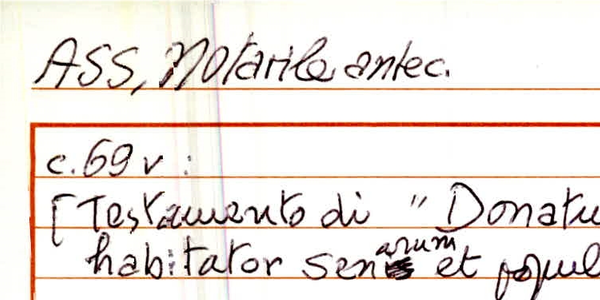 ASS, Notarile antec.
c. 69 v :
[Testamento di "Donatu
habitator Senarum et popul